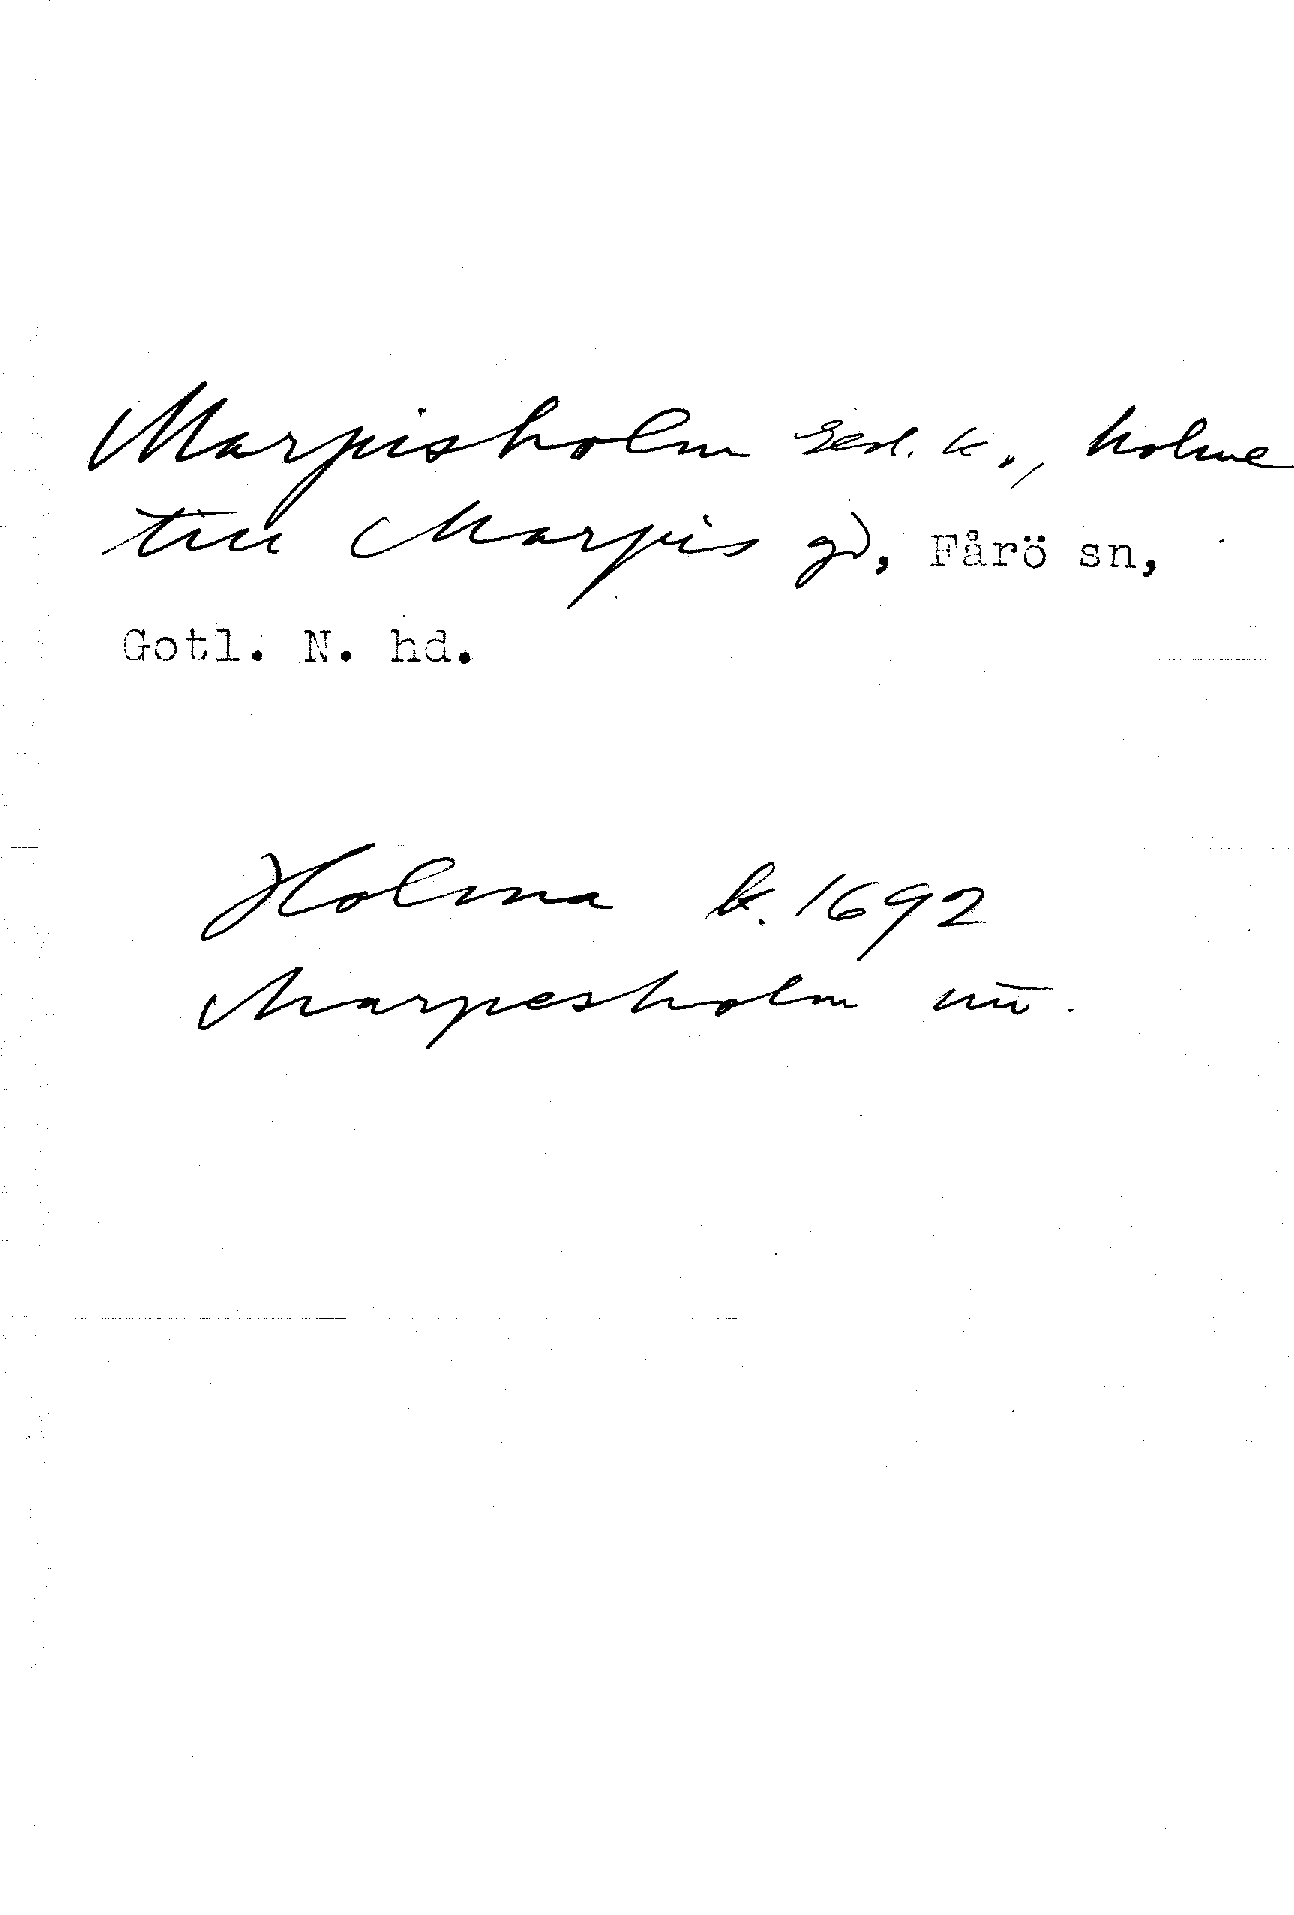 Marpisholm ged. k., holme
till Marpis gd, Fårö sn,
Gotl. N. hd.
Holma k. 1692
Marpesholm nu.